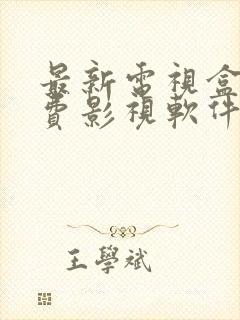 最新電視盒
費影視軟件
王學斌